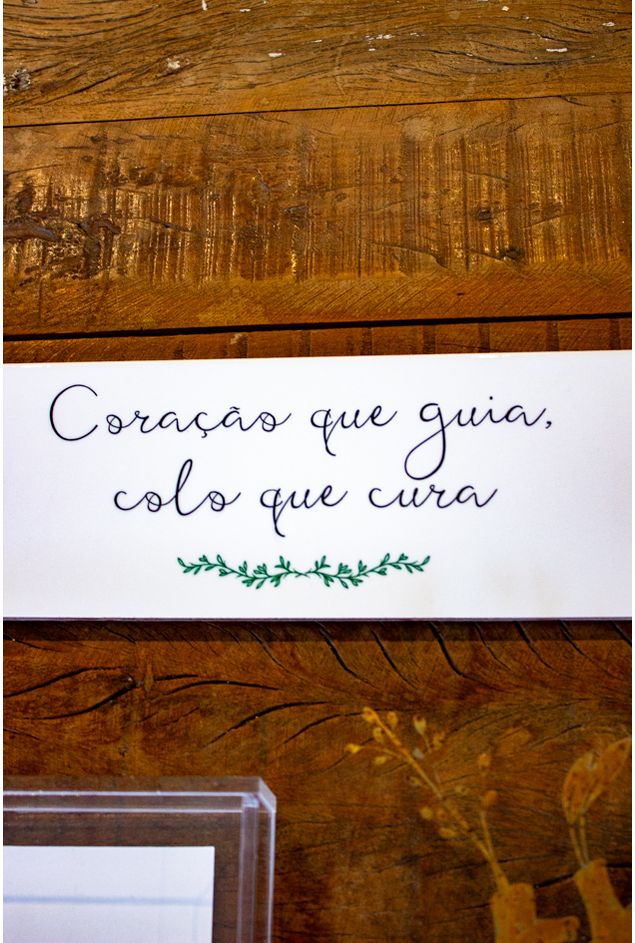 Coração que guia,
colo que cura